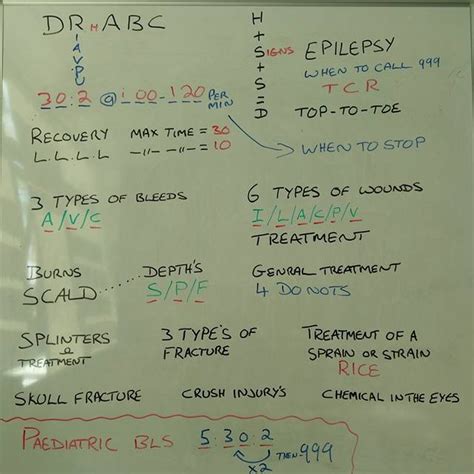 DRHABC
I
A
V
P
U
H+S+S=D
SIGNS
EPILEPSY
WHEN TO CALL 999
TCR
30:2 @ 100-120 PER MIN
TOP-TO-TOE
RECOVERY MAX TIME = 30
L.L.L.L -"- -"- = 10
WHEN TO STOP
3 TYPES OF BLEEDS
A/V/C
6 TYPES OF WOUNDS
I/L/A/C/P/V
TREATMENT
BURNS
SCALD ...... DEPTH'S
S/P/F
GENRAL TREATMENT
4 DO NOTS
SPLINTERS
& TREATMENT
3 TYPE'S OF
FRACTURE
TREATMENT OF A
SPRAIN OR STRAIN
RICE
SKULL FRACTURE CRUSH INJURY'S CHEMICAL IN THE EYES
PAEDIATRIC BLS 5:30:2 THEN 999
x2